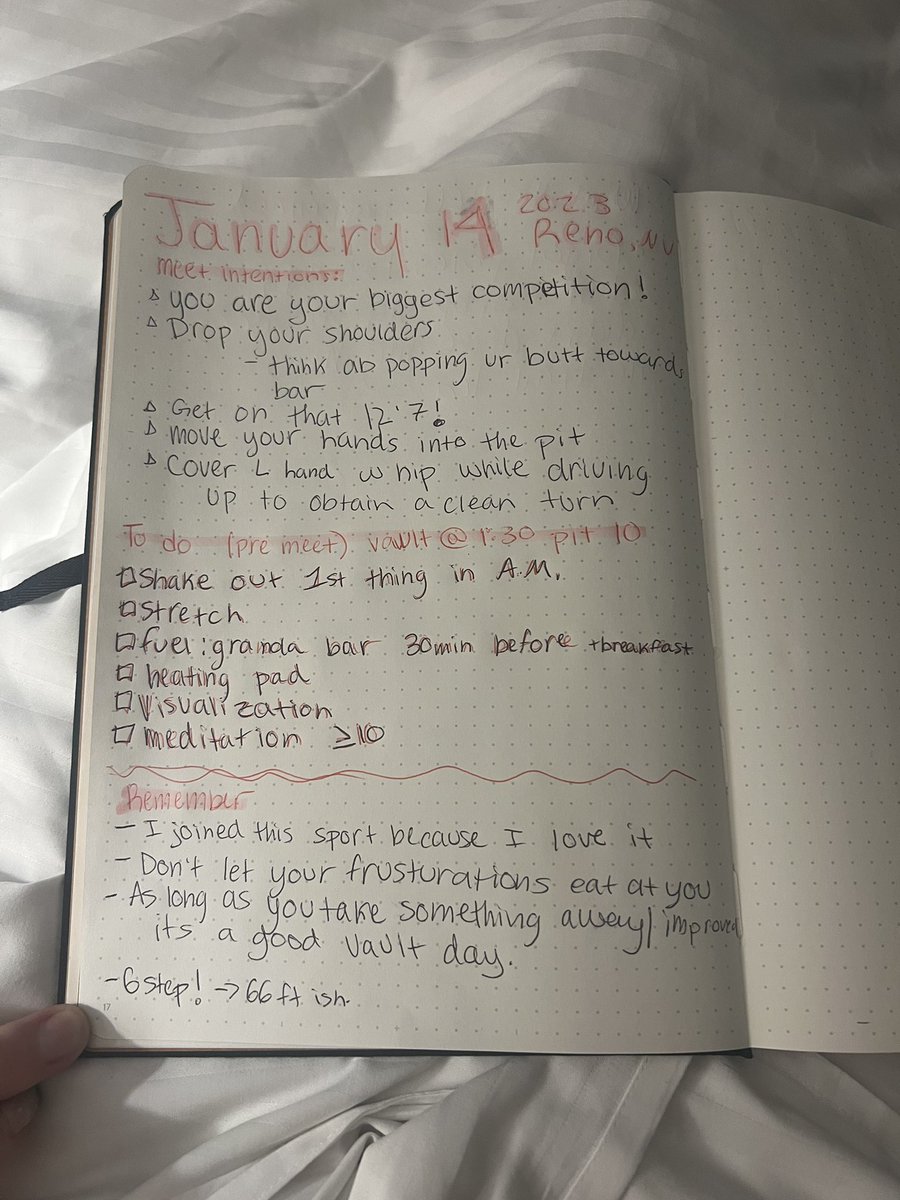 January 14 2023
Reno, NV
meet intentions:
△ you are your biggest competition!
△ Drop your shoulders
- think ab popping ur butt towards
bar
△ Get on that 12'7!
△ move your hands into the pit
△ Cover L hand w hip while driving
up to obtain a clean turn
To do (pre meet): vault @ 1:30 pit 10
□ Shake out 1st thing in A.M.
□ stretch
□ fuel: granola bar 30min before + breakfast
□ heating pad
□ Visualization
□ meditation ≥10
Remember
- I joined this sport because I love it
- Don't let your frusturations eat at you
- As long as you take something away/improved
its a good vault day.
- 6 step! → 66 ft ish.
17